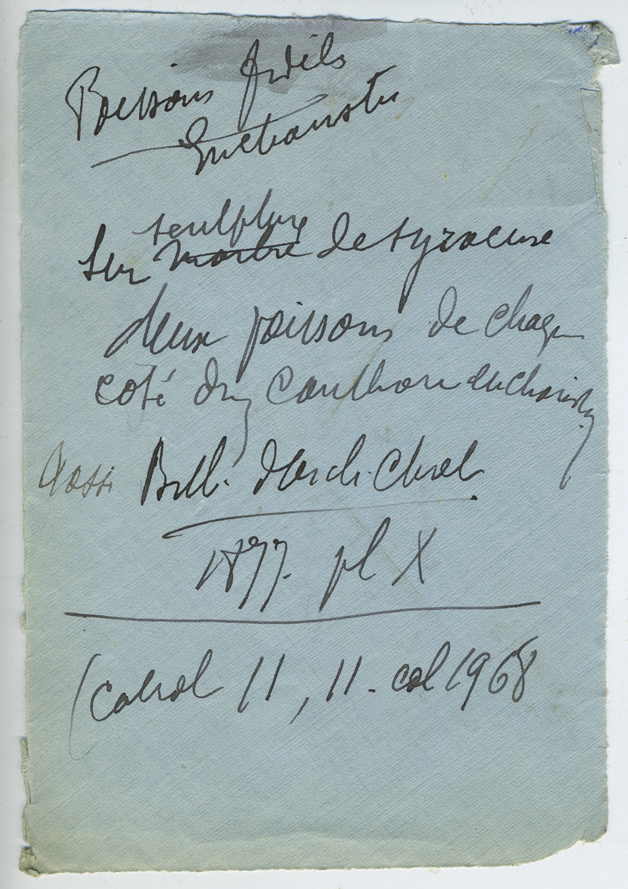 Poissons fidèls
Eucharistie
sculpture
sur marbre de Syracuse
deux poissons de chaque
coté d'un canthare eucharistiq
Rossi Bull. d'arch. chret
1877. pl X
(Cabrol 11, 11. col 1968